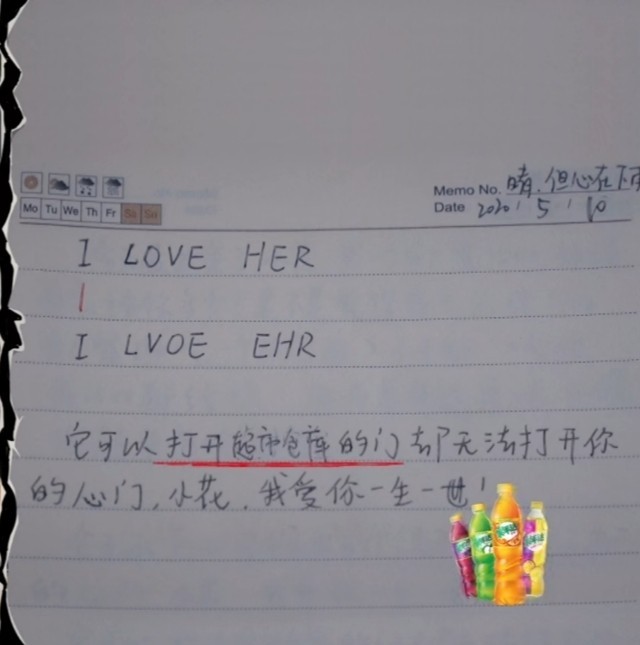 Memo No. 晴,但心在下雨
Mo Tu We Th Fr Sa Su
Date 2020 / 5 / 10
I LOVE HER
I LVOE EHR
它可以打开超市仓库的门却无法打开你
的心门,小花,我爱你一生一世!